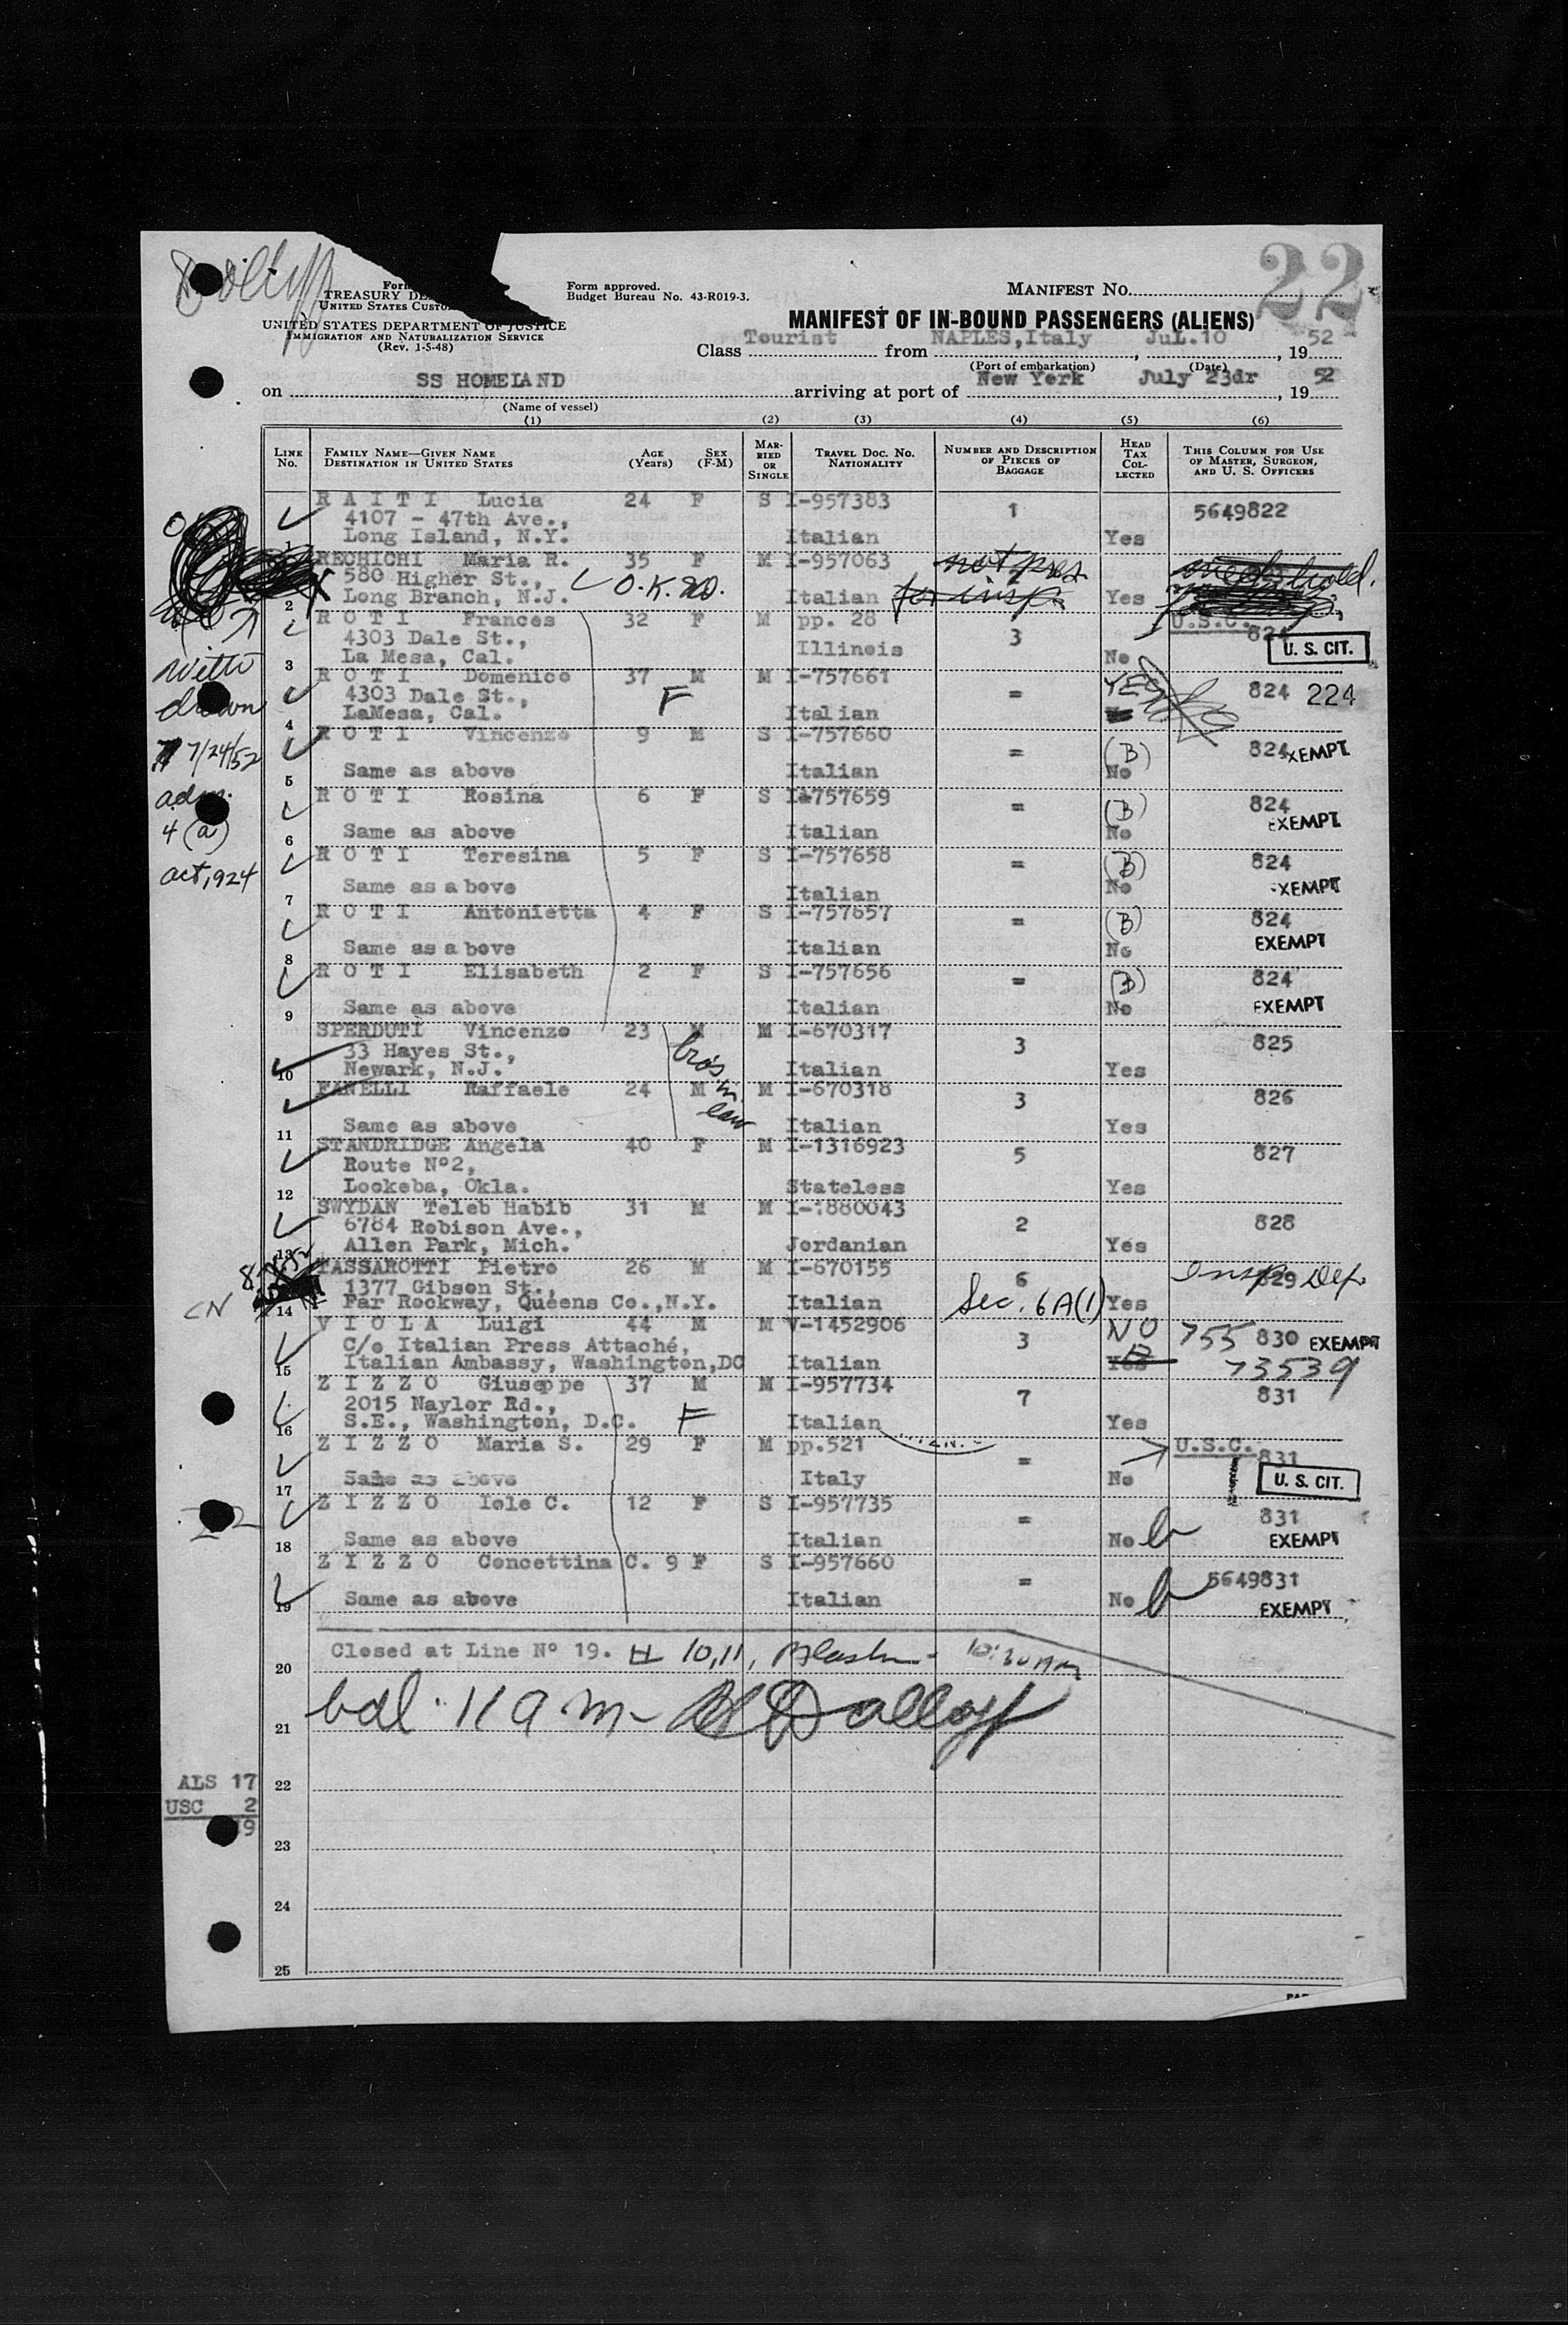 22
Form approved.
Budget Bureau No. 43-R019-3.
MANIFEST No.
TREASURY
UNITED STATES
UNITED STATES DEPARTMENT OF JUSTICE
IMMIGRATION AND NATURALIZATION SERVICE
(Rev. 1-5-48)
MANIFEST OF IN-BOUND PASSENGERS (ALIENS)
Class Tourist from NAPLES,Italy, JuL.10, 1952
(Port of embarkation) (Date)
on SS HOMELAND arriving at port of New York July 23dr, 1952
(Name of vessel)
(1) (2) (3) (4) (5) (6)
LINE No. FAMILY NAME—GIVEN NAME DESTINATION IN UNITED STATES AGE (Years) SEX (F-M) MARRIED OR SINGLE TRAVEL DOC. No. NATIONALITY NUMBER AND DESCRIPTION OF PIECES OF BAGGAGE HEAD TAX COLLECTED THIS COLUMN FOR USE OF MASTER, SURGEON, AND U. S. OFFICERS
RAITI Lucia 24 F S I-957383 1 5649822
4107 - 47th Ave.,
1 Long Island, N.Y. Italian Yes
RECHICHI Maria R. 35 F M I-957063 not pres
580 Higher St., O.K.
2 Long Branch, N.J. Italian for insp. Yes
ROTI Frances 32 F M pp. 28 3 U.S.C. 824
4303 Dale St., Illinois U. S. CIT.
3 La Mesa, Cal. No
ROTI Domenico 37 M M I-757661 = YES 824 224
4303 Dale St., F
4 LaMesa, Cal. Italian
ROTI Vincenzo 9 M S I-757660 = (B) 824 EXEMPT
5 Same as above Italian No
ROTI Rosina 6 F S I-757659 = (B) 824
6 Same as above Italian No EXEMPT
ROTI Teresina 5 F S I-757658 = (B) 824
7 Same as above Italian No EXEMPT
ROTI Antonietta 4 F S I-757657 = (B) 824
8 Same as above Italian No EXEMPT
ROTI Elisabeth 2 F S I-757656 = (B) 824
9 Same as above Italian No EXEMPT
SPERDUTI Vincenzo 23 M M I-670317 3 825
33 Hayes St.,
10 Newark, N.J. Italian Yes
bros in law
FANELLI Raffaele 24 M M I-670318 3 826
11 Same as above Italian Yes
STANDRIDGE Angela 40 F M I-1316923 5 827
Route Nº2,
12 Lookeba, Okla. Stateless Yes
SWYDAN Teleb Habib 31 M M I-1880043 2 828
6784 Robison Ave.,
13 Allen Park, Mich. Jordanian Yes
TASSAROTTI Pietro 26 M M I-670155 6 829 Insp. Def.
1377 Gibson St.,
14 Far Rockway, Queens Co.,N.Y. Italian Sec. 6A(1) Yes
VIOLA Luigi 44 M M V-1452906 3 NO 755 830 EXEMPT
C/o Italian Press Attaché,
15 Italian Ambassy, Washington,DC Italian Yes 73539
ZIZZO Giuseppe 37 M M I-957734 7 831
2015 Naylor Rd.,
16 S.E., Washington, D.C. F Italian Yes
ZIZZO Maria S. 29 F M pp.521 = U.S.C. 831
17 Same as above Italy No U. S. CIT.
ZIZZO Iole C. 12 F S I-957735 = 831
18 Same as above Italian No b EXEMPT
ZIZZO Concettina C. 9 F S I-957660 = 5649831
19 Same as above Italian No b EXEMPT
20 Closed at Line Nº 19. 10,11, 10:30 AM
21 bdl. 11 a m
With
drawn
7/24/52
adm.
4 (a)
act, 924
CN
ALS 17
USC 2
19
22
23
24
25